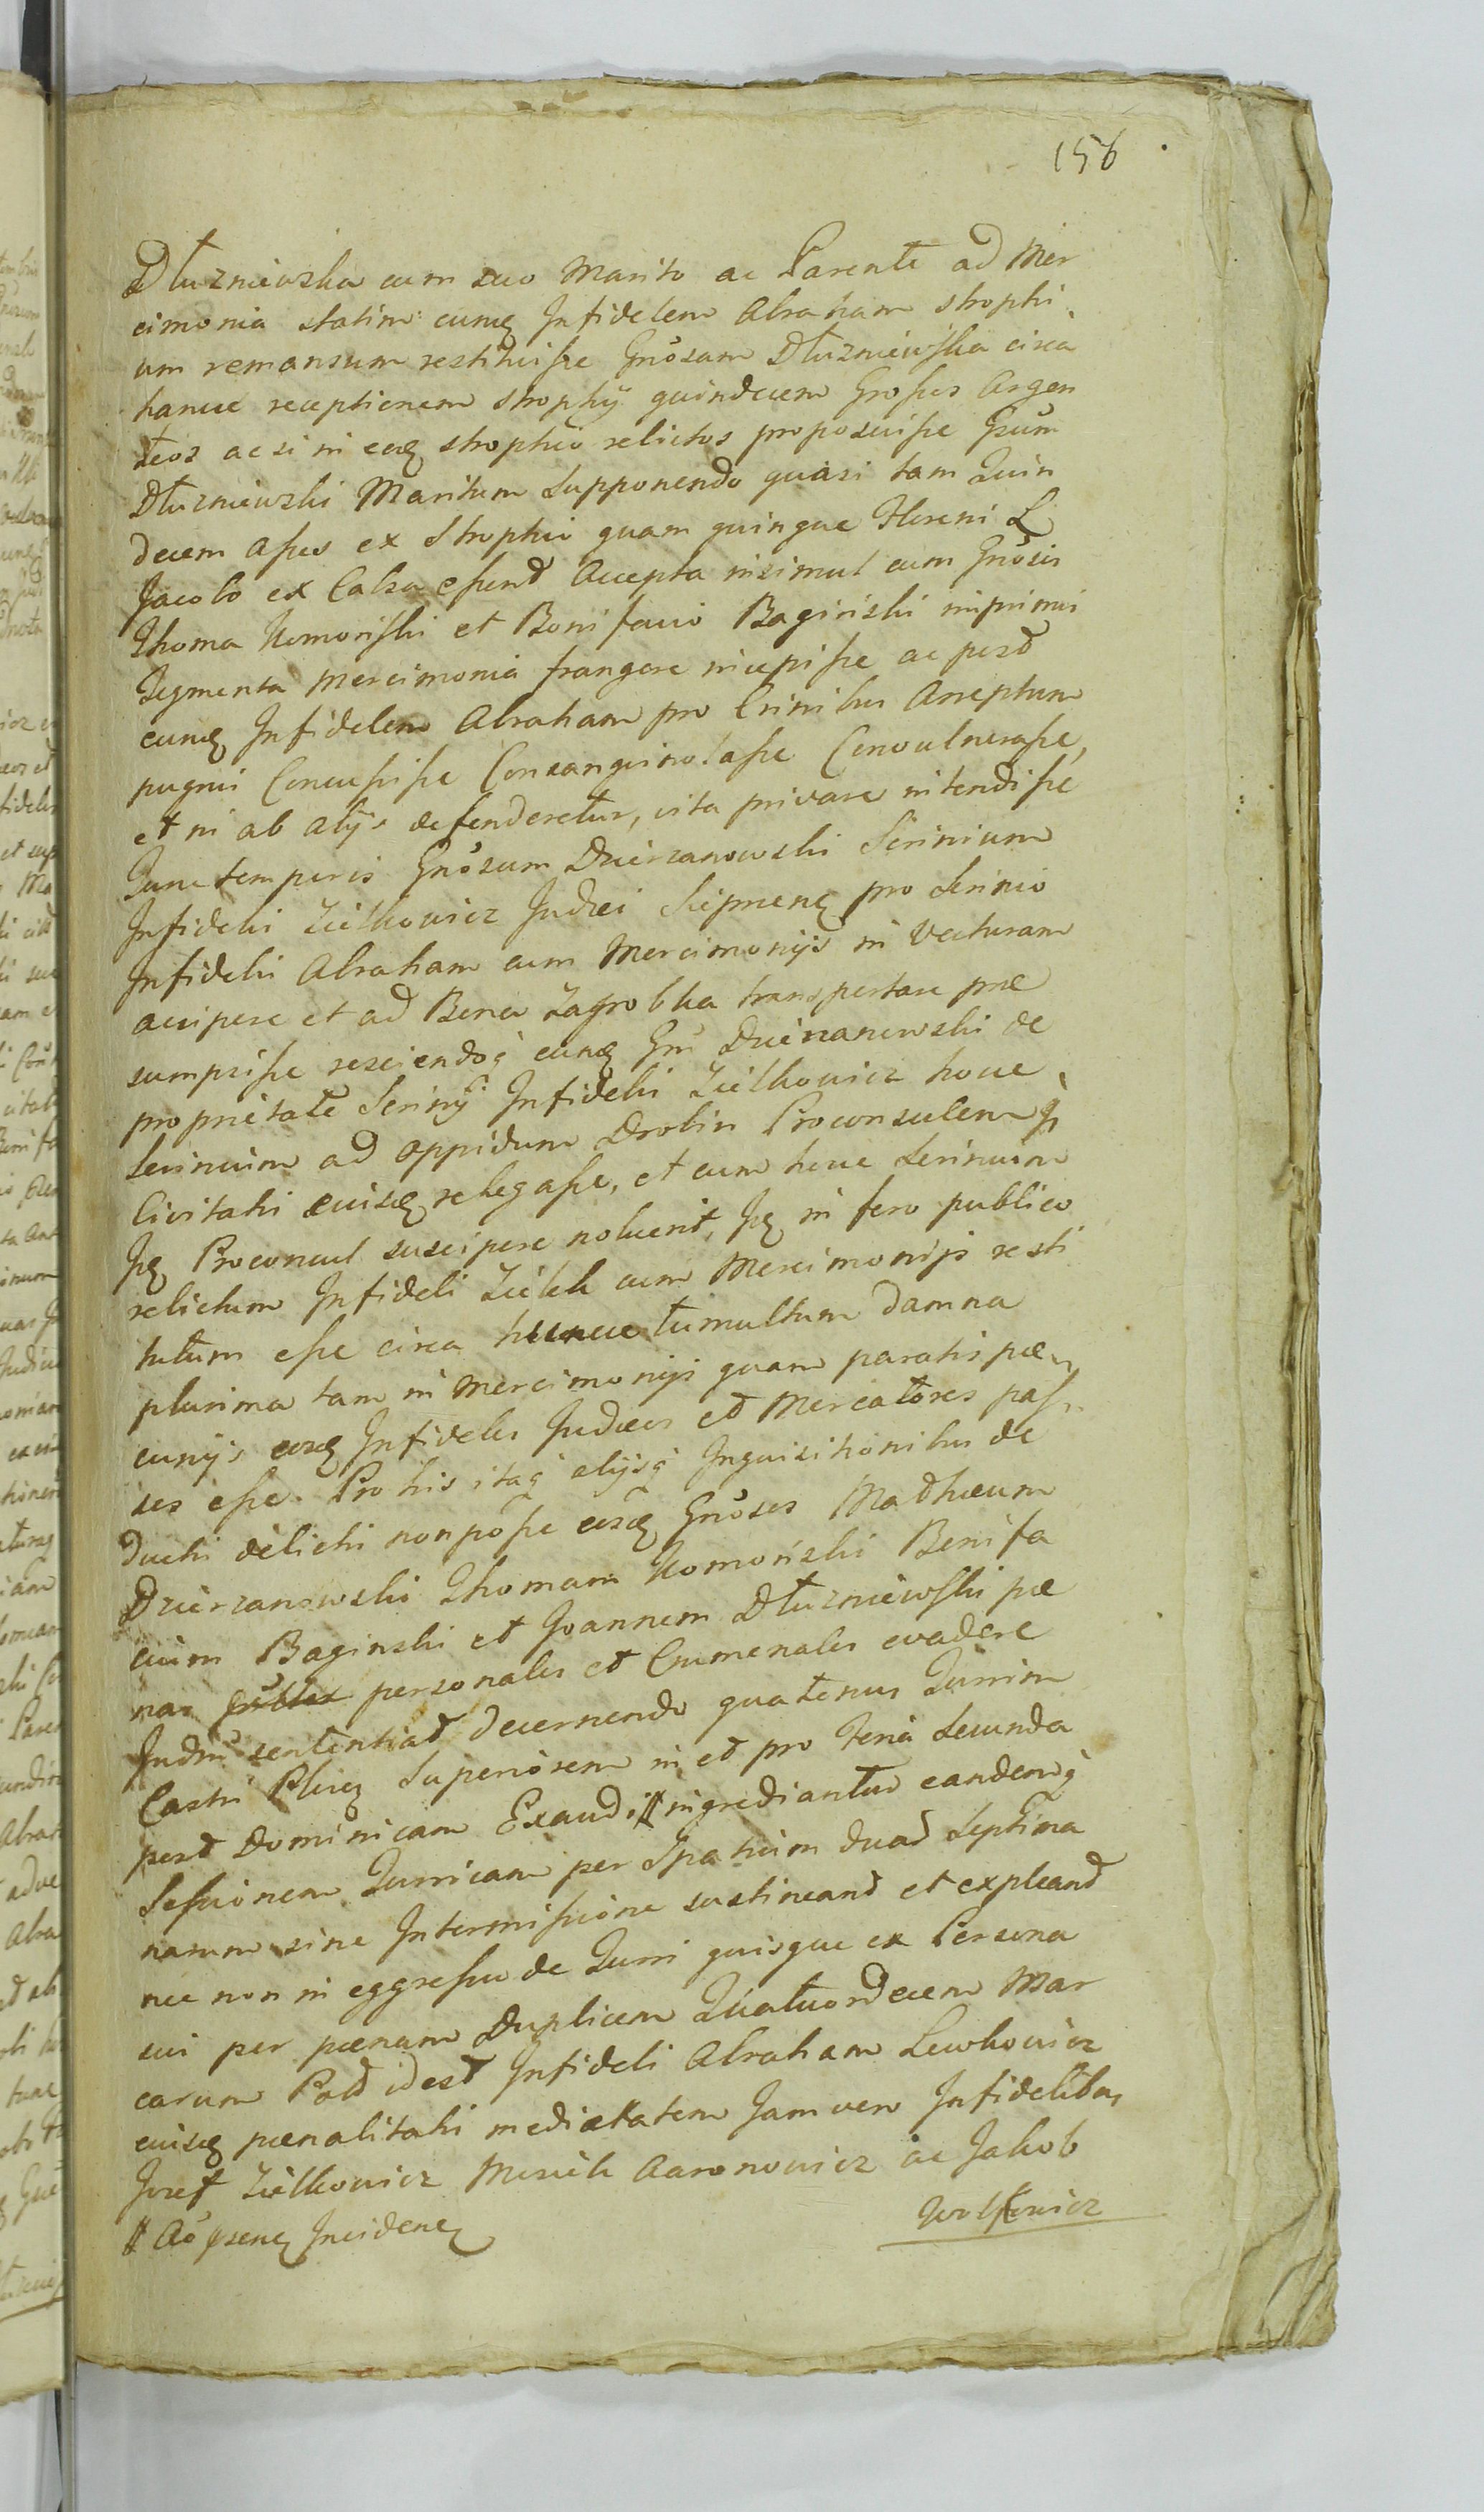 156
Dłuzniewska cum suo Marito ac Parente ad Mer
cimonia statim: eumq Infidelem Abraham strophi
um remansum restituisse Gnõsam Dłuzniewska circa
hancce receptionem strophij quindecem Grossos Argen
teos ac si in eoq strophio relictos proposuisse Gsum
Dłuzniewski Maritum supponendo quasi tam Quin
decem asses ex strophio quam quinque Floreni L
Jacobo ex Calsa essent Accepta insimul cum Gnõsis
Thoma Komoński et Bonifacio Baginski inprimis
Tegmenta Mercimonia frangere incepisse ac post
eumq Infidelem Abraham pro Crinibus Arreptum
pugnis Concussisse Consanguinolasse Convulnerasse,
et ni ab alijs defenderetur, vita privare intendisse
Tunc temporis Gnõsum Dzierzanowski Scrinium
Infidelis Zielkowicz Judei Siepmenq pro Scrinio
Infidelis Abraham cum Mercimonijs in Vecturam
accipere et ad Bona Zagrobka transportare præ
sumpsisse resciendoq eumq Gm Dzierzanowski de
proprietate Scrinij Infidelis Zielkowicz hocce
Scrinium ad oppidum Drobin Proconsulemq
Civitatis eiusq relegasse, et cum hocce Scrinium
Iq Proconsul suscipere noluerit, Iq in foro publico
relictum Infideli Zielk cum Mercimonijs resti
tutum esse circa huncce tumultum damna
plurima tam in Mercimonijs quam paratis pæ
cunijs eosq Infideles Judæos et Mercatores pas
sos esse. Pro his itaq alijsq Inquisitionibus de
ducti delicti non posse eosq Gnõsos Mathæum
Dzierzanowski Thomam Komoński Bonifa
cium Baginski et Joannem Dłuzniewski pæ
nas personales et Crumenales evadere
Judm sententiat decernendo quatenus Turrim
Castri Plicq Superiorem in et pro Feria Secunda
post Dominicam Exaudi # ingrediantur eandemq
Sessionem Turricam per Spatium duar Septima
narum sine Intermissione sustineant et expleant
nec non in eggressu de Turri quisque ex Persona
sui per pænam Duplicem Quatuordecem Mar
carum Poll idest Infideli Abraham Lewkowicz
eiusq pænalitatis medietatem Jam vero Infidelibus
Josef Zielkowicz Mosiek Aaronowicz ac Jakob
Wolfowicz
# Aõ psenq Incidenq